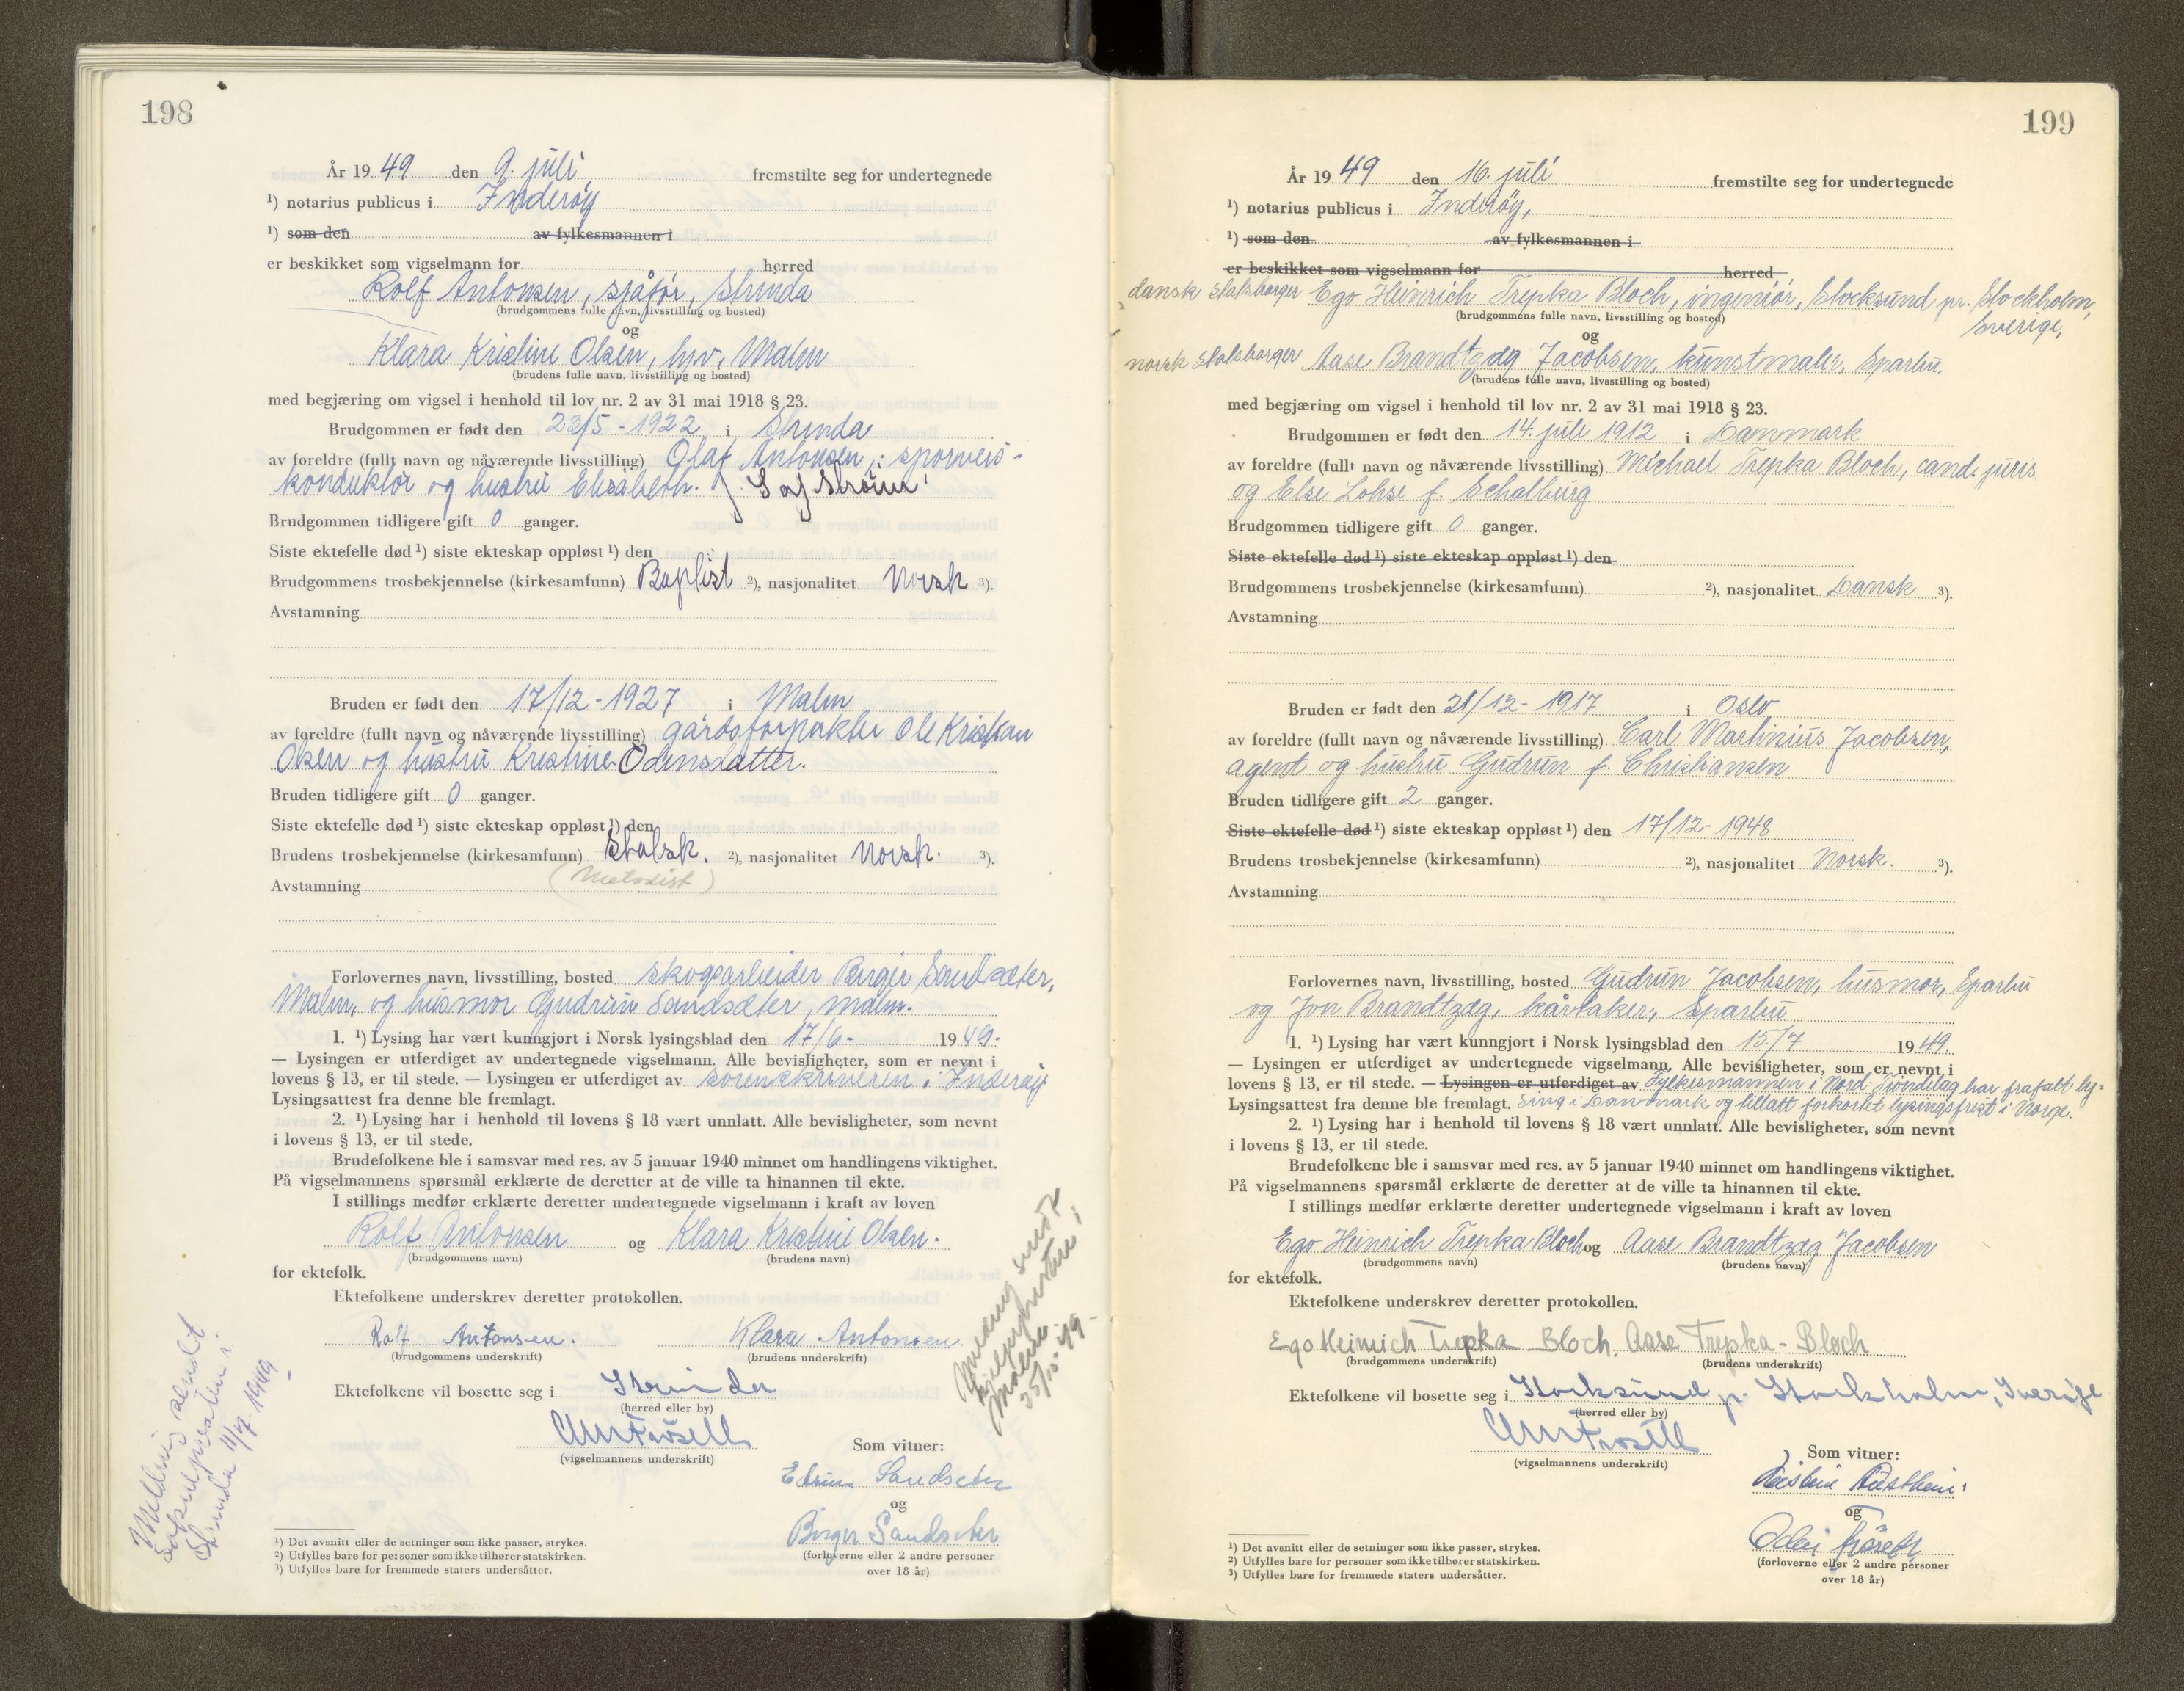 198
År 1949 den 9. juli fremstilte seg for undertegnede
¹) notarius publicus i Inderøy
¹) som den av fylkesmannen i
er beskikket som vigselmann for herred
Rolf Antonsen, sjåfør, Strinda
(brudgommens fulle navn, livsstilling og bosted)
og
Klara Kristine Olsen, hpv, Malm
(brudens fulle navn, livsstilling og bosted)
med begjæring om vigsel i henhold til lov nr. 2 av 31 mai 1918 § 23.
Brudgommen er født den 23/5 - 1922 i Strinda
av foreldre (fullt navn og nåværende livsstilling) Olaf Antonsen, sporveis-
konduktør og hustru Elisabeth. f.
Brudgommen tidligere gift 0 ganger.
Siste ektefelle død ¹) siste ekteskap oppløst ¹) den
Brudgommens trosbekjennelse (kirkesamfunn) Baptist ²), nasjonalitet Norsk ³).
Avstamning
Bruden er født den 17/12 - 1927 i Malm
av foreldre (fullt navn og nåværende livsstilling) gårdsforpakter Ole Kristian
Olsen og hustru Kristine Odinsdatter.
Bruden tidligere gift 0 ganger.
Siste ektefelle død ¹) siste ekteskap oppløst ¹) den
Brudens trosbekjennelse (kirkesamfunn) Statsk. ²), nasjonalitet Norsk. ³).
(Metodist)
Avstamning
Forlovernes navn, livsstilling, bosted skogsarbeider Birger Sandsæter,
Malm, og husmor Gudrun Sandsæter, Malm.
1. ¹) Lysing har vært kunngjort i Norsk lysingsblad den 17/6- 1949.
— Lysingen er utferdiget av undertegnede vigselmann. Alle bevisligheter, som er nevnt i
lovens § 13, er til stede. — Lysingen er utferdiget av sorenskriveren i Inderøy
Lysingsattest fra denne ble fremlagt.
2. ¹) Lysing har i henhold til lovens § 18 vært unnlatt. Alle bevisligheter, som nevnt
i lovens § 13, er til stede.
Brudefolkene ble i samsvar med res. av 5 januar 1940 minnet om handlingens viktighet.
På vigselmannens spørsmål erklærte de deretter at de ville ta hinannen til ekte.
I stillings medfør erklærte deretter undertegnede vigselmann i kraft av loven
Rolf Antonsen og Klara Kristine Olsen.
(brudgommens navn) (brudens navn)
for ektefolk.
Ektefolkene underskrev deretter protokollen.
Rolf Antonsen. Klara Antonsen.
(brudgommens underskrift) (brudens underskrift)
Ektefolkene vil bosette seg i Strinda
(herred eller by)
(vigselmannens underskrift)
Som vitner:
Sandseter
og
Birger Sandseter
(forloverne eller 2 andre personer
over 18 år)
Melding sendt
sokneprest
Malm
25/10-49-
Melding sendt
soknepresten i
Strinda 11/7-1949
¹) Det avsnitt eller de setninger som ikke passer, strykes.
²) Utfylles bare for personer som ikke tilhører statskirken.
³) Utfylles bare for fremmede staters undersåtter.
199
År 1949 den 16. juli fremstilte seg for undertegnede
¹) notarius publicus i Inderøy,
¹) som den av fylkesmannen i
er beskikket som vigselmann for herred
dansk statsborger Ego Heinrich Trepka Bloch, ingeniør, Stocksund pr. Stockholm,
Sverige,
(brudgommens fulle navn, livsstilling og bosted)
og
norsk statsborger Aase Brandtzæg Jacobsen, kunstmaler, Sparbu.
(brudens fulle navn, livsstilling og bosted)
med begjæring om vigsel i henhold til lov nr. 2 av 31 mai 1918 § 23.
Brudgommen er født den 14. juli 1912 i Danmark
av foreldre (fullt navn og nåværende livsstilling) Michael Trepka Bloch, cand. juris.
og Else Lohse f. Schalburg
Brudgommen tidligere gift 0 ganger.
Siste ektefelle død ¹) siste ekteskap oppløst ¹) den
Brudgommens trosbekjennelse (kirkesamfunn) ²), nasjonalitet Dansk ³).
Avstamning
Bruden er født den 21/12 - 1917 i Oslo
av foreldre (fullt navn og nåværende livsstilling) Carl Martinius Jacobsen,
agent og hustru Gudrun f. Christiansen
Bruden tidligere gift 2 ganger.
Siste ektefelle død ¹) siste ekteskap oppløst ¹) den 17/12 - 1948
Brudens trosbekjennelse (kirkesamfunn) ²), nasjonalitet Norsk. ³).
Avstamning
Forlovernes navn, livsstilling, bosted Gudrun Jacobsen, husmor, Sparbu
og Jon Brandtzæg, kårtaker, Sparbu
1. ¹) Lysing har vært kunngjort i Norsk lysingsblad den 15/7 1949
— Lysingen er utferdiget av undertegnede vigselmann. Alle bevisligheter, som er nevnt i
lovens § 13, er til stede. — Lysingen er utferdiget av Fylkesmannen i Nord-Trøndelag har frafalt ly=
Lysingsattest fra denne ble fremlagt. sing i Danmark og tillatt forkortet lysingsfrist i Norge.
2. ¹) Lysing har i henhold til lovens § 18 vært unnlatt. Alle bevisligheter, som nevnt
i lovens § 13, er til stede.
Brudefolkene ble i samsvar med res. av 5 januar 1940 minnet om handlingens viktighet.
På vigselmannens spørsmål erklærte de deretter at de ville ta hinannen til ekte.
I stillings medfør erklærte deretter undertegnede vigselmann i kraft av loven
Ego Heinrich Trepka Bloch og Aase Brandtzæg Jacobsen
(brudgommens navn) (brudens navn)
for ektefolk.
Ektefolkene underskrev deretter protokollen.
Ego Heinrich Trepka Bloch. Aase Trepka-Bloch
(brudgommens underskrift) (brudens underskrift)
Ektefolkene vil bosette seg i Stocksund p. Stockholm, Sverige
(herred eller by)
(vigselmannens underskrift)
Som vitner:
og
(forloverne eller 2 andre personer
over 18 år)
¹) Det avsnitt eller de setninger som ikke passer, strykes.
²) Utfylles bare for personer som ikke tilhører statskirken.
³) Utfylles bare for fremmede staters undersåtter.